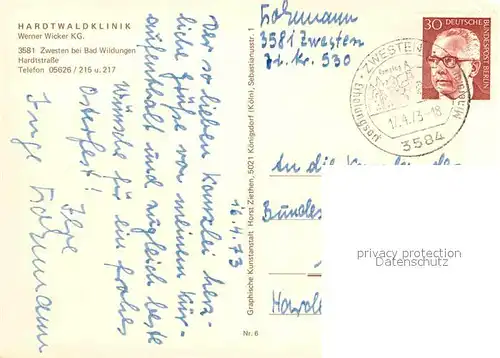 HARDTWALDKLINIK
Werner Wicker KG.
3581 Zwesten bei Bad Wildungen
Hardtstraße
Telefon 05626 / 215 u. 217
16.4.73
Der so lieben Kanzlei herz-
liche Grüße von meinem Kur-
aufenthalt und zugleich beste
Wünsche für ein frohes
Osterfest!
Ihre
Inge
Graphische Kunstanstalt Horst Ziethen, 5021 Königsdorf (Köln), Sebastianusstr. 1
Nr. 6
3581 Zwesten
530
30 DEUTSCHE
BUNDESPOST BERLIN
ZWESTEN
17.4.73-18
Erholungsort
3584
An die
Bundes
privacy protection
Datenschutz